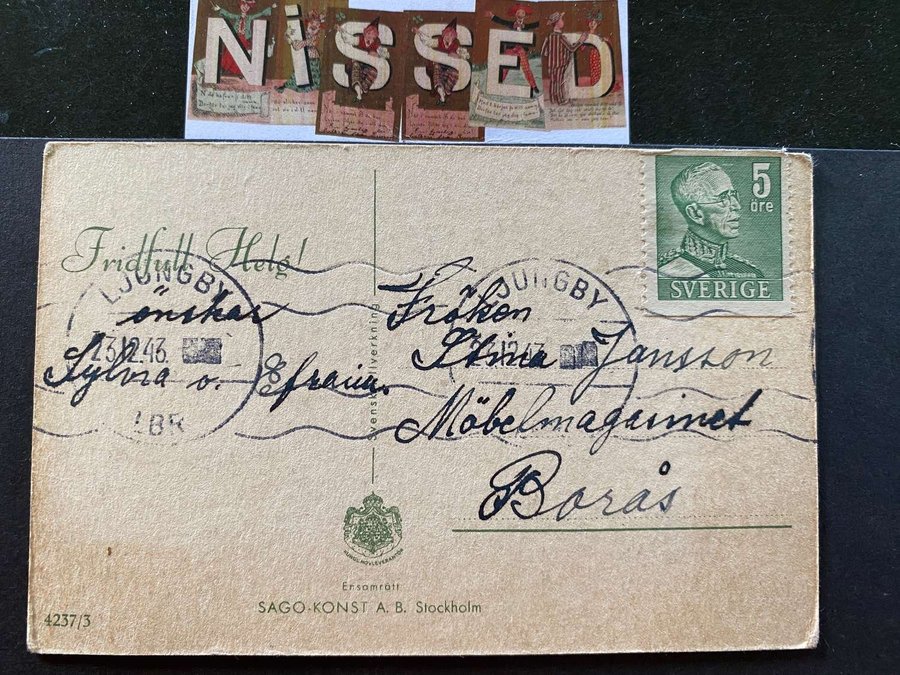 NiSSED
5
öre
SVERIGE
Fridfull Helg!
önskar
Sylvia o. Efraim.
LJUNGBY
23.12.43.
LBR
LJUNGBY
23.12.43
Svensk tillverkning
Fröken
Stina Jansson
Möbelmagasinet
Borås
KUNGL. HOVLEVERANTÖR
Ensamrätt
SAGO-KONST A. B. Stockholm
4237/3